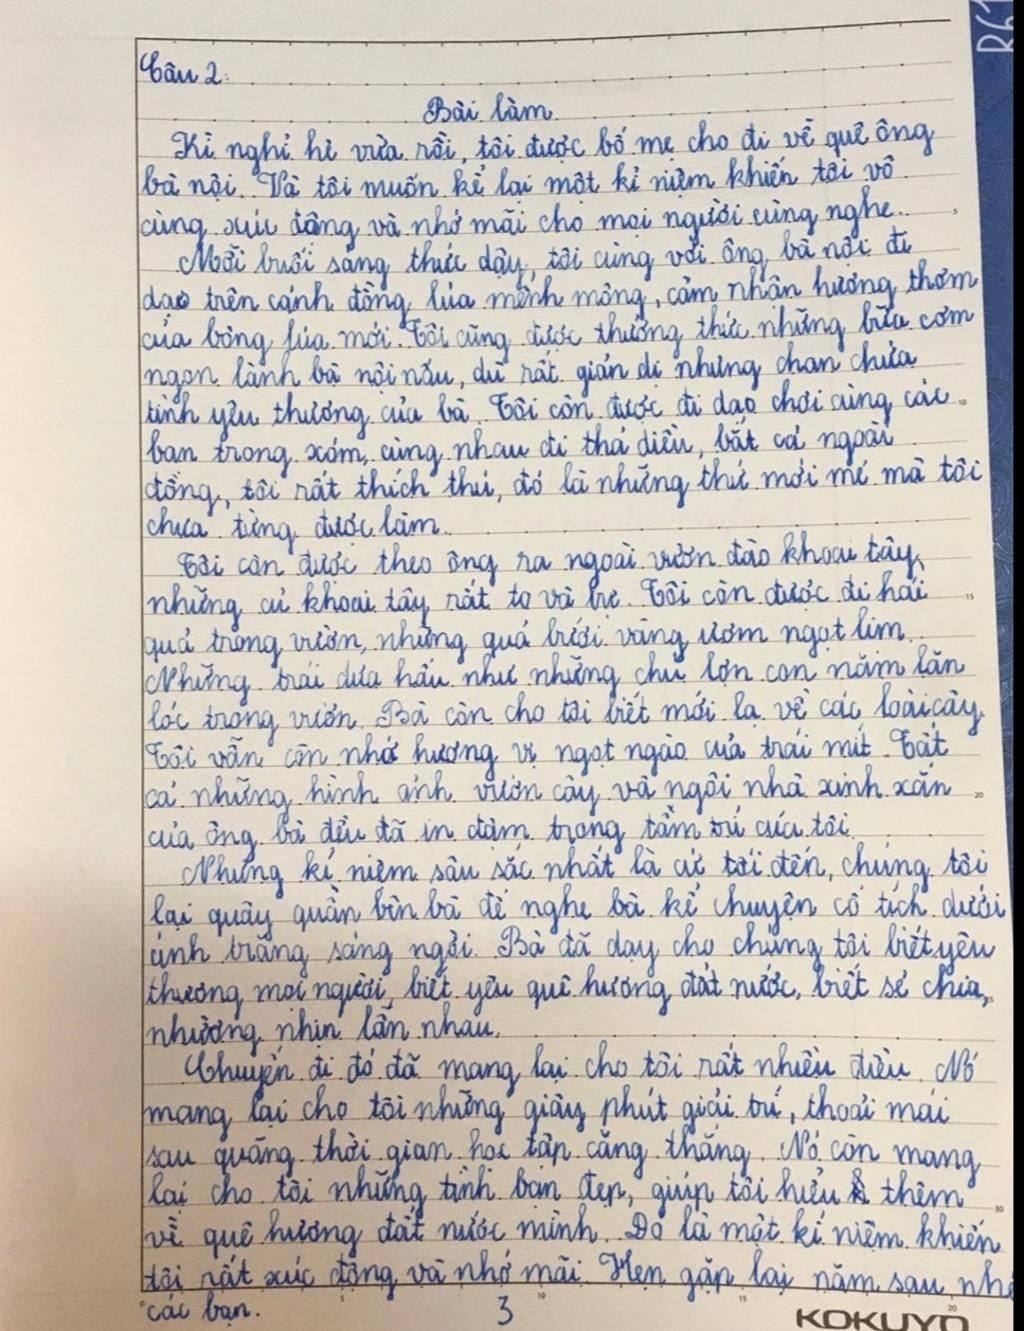 Câu 2:
Bài làm
Kì nghỉ hè vừa rồi, tôi được bố mẹ cho đi về quê ông
bà nội. Và tôi muốn kể lại một kỉ niệm khiến tôi vô
cùng xúc động và nhớ mãi cho mọi người cùng nghe.
Mỗi buổi sáng thức dậy, tôi cùng với ông bà nội đi
dạo trên cánh đồng lúa mênh mông, cảm nhận hương thơm
của bông lúa mới. Tôi cũng được thưởng thức những bữa cơm
ngon lành bà nội nấu, dù rất giản dị nhưng chan chứa
tình yêu thương của bà. Tôi còn được đi dạo chơi cùng các
bạn trong xóm, cùng nhau đi thả diều, bắt cá ngoài
đồng, tôi rất thích thú, đó là những thứ mới mẻ mà tôi
chưa từng được làm.
Tôi còn được theo ông ra ngoài vườn đào khoai tây,
những củ khoai tây rất to và . Tôi còn được đi hái
quả trong vườn, những quả bưởi vàng ươm ngọt lim.
Những trái dưa hấu như những chú lợn con nằm lăn
lóc trong vườn. Bà còn cho tôi biết mới lạ về các loài cây.
Tôi vẫn còn nhớ hương vị ngọt ngào của trái mít. Tất
cả những hình ảnh vườn cây và ngôi nhà xinh xắn
của ông bà đều đã in đậm trong tâm trí của tôi.
Những kỉ niệm sâu sắc nhất là cứ tối đến, chúng tôi
lại quây quần bên bà để nghe bà kể chuyện cổ tích dưới
ánh trăng sáng ngời. Bà đã dạy cho chúng tôi biết yêu
thương mọi người, biết yêu quê hương đất nước, biết sẻ chia,
nhường nhịn lẫn nhau.
Chuyến đi đó đã mang lại cho tôi rất nhiều điều. Nó
mang lại cho tôi những giây phút giải trí, thoải mái
sau quãng thời gian học tập căng thẳng. Nó còn mang
lại cho tôi những tình bạn đẹp, giúp tôi hiểu thêm
về quê hương đất nước mình. Đó là một kỉ niệm khiến
tôi rất xúc động và nhớ mãi. Hẹn gặp lại năm sau nhé
các bạn.
3
KOKUYO